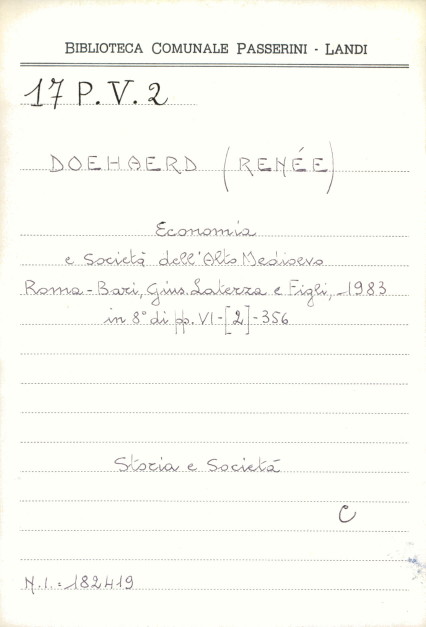 BIBLIOTECA COMUNALE PASSERINI - LANDI
17 P.V.2
DOEHAERD (RENÉE)
Economia
e Società dell'Alto Medioevo
Roma-Bari, Gius. Laterza e Figli, 1983
in 8° di pp. VI-[2]-356
Storia e Società
C
N.I.: 182419